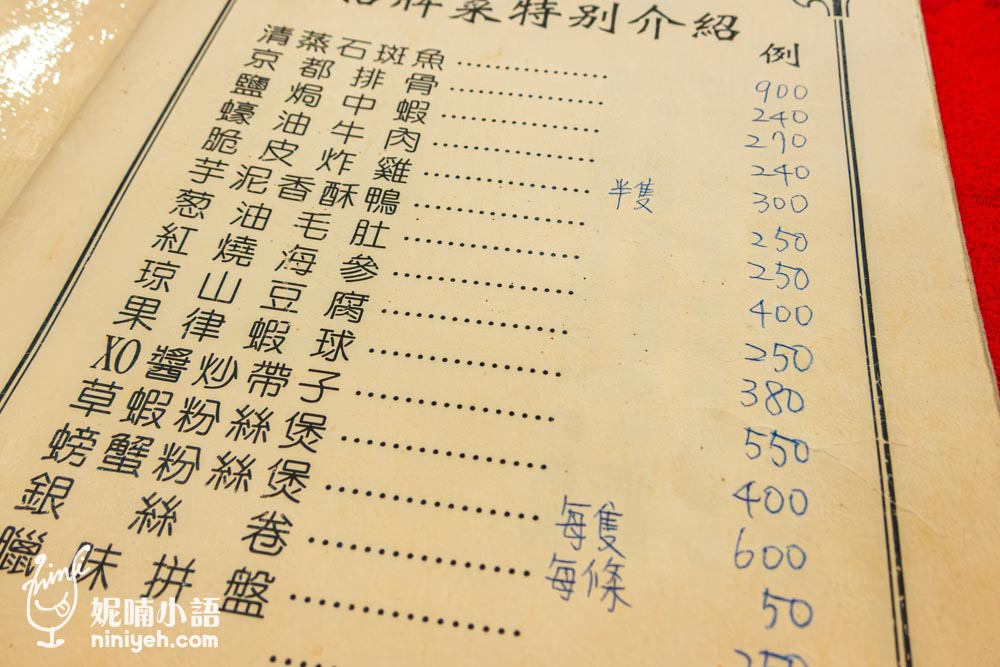 招牌菜特別介紹
例
清蒸石斑魚 ............... 900
京都排骨 ............... 240
鹽焗中蝦 ............... 270
蠔油牛肉 ............... 240
脆皮炸雞 ............... 半隻 300
芋泥香酥鴨 ............... 250
葱油毛肚 ............... 250
紅燒海參 ............... 400
琼山豆腐 ............... 250
果律蝦球 ............... 380
XO醬炒帶子 ............... 550
草蝦粉絲煲 ............... 400
螃蟹粉絲煲 ............... 每隻 600
銀絲卷 ............... 每條 50
臘味拼盤 ............... 250
nini
妮喃小語
niniyeh.com